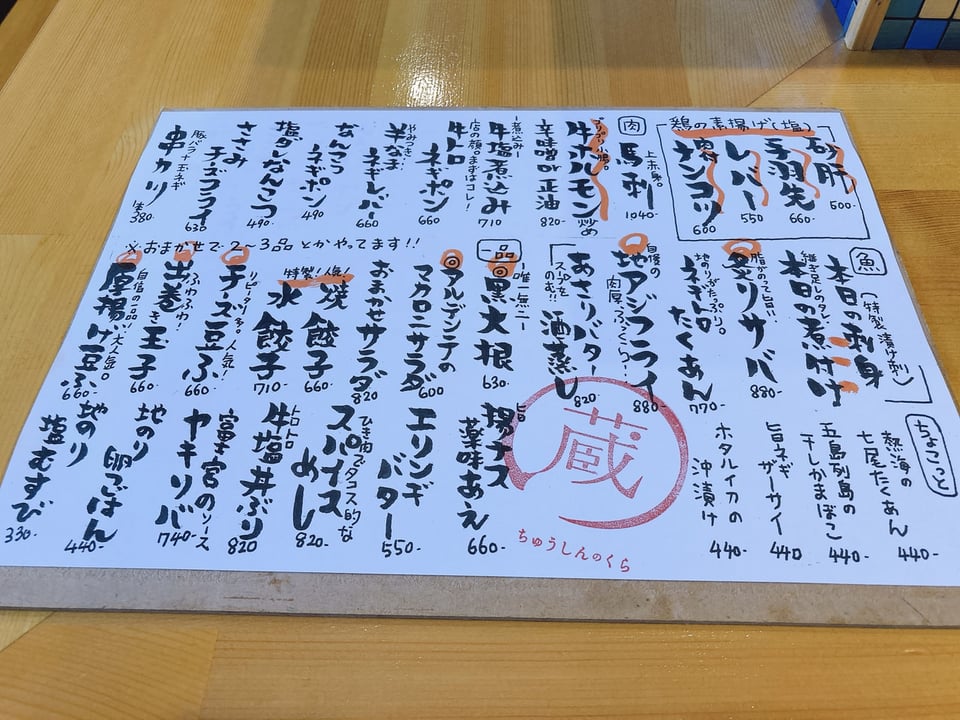 鶏の素揚げ(塩)
砂肝
500-
手羽先
660-
レバー
550
ナンコツ
600
肉
上赤身。
馬刺
1040-
プリプリ小腸。
牛ホルモン炒め
辛味噌or正油
820-
一煮込み一
牛塩煮込み
710
店の顔。まずはコレ!
牛トロ
ネギポン
660
やみつき
半なま
ネギレバー
660
なんこつ
ネギポン
490
塩ダレなんこつ
490-
ささみ
チーズフライ
630
豚バラ+玉ネギ
串カツ
380-
※おまかせで2〜3品とかやってます!!
魚
本日の刺身
(特製漬け刺)
継ぎ足しのタレ
本日の煮付け
脂がのって旨い
炙りサバ
880-
地のりがたっぷり。
ネギトロ
たくあん
770-
自慢の
地アジフライ
肉厚、ふっくら!
880
あさりバター
酒蒸し
820-
スープを
のむ!!
一品
唯一無二
黒大根
630-
アルデンテの
マカロニサラダ
600
おまかせサラダ
820
特製!人気!
焼餃子
660-
水餃子
710-
リピーター多し人気!
チーズ豆ふ
660
ふわふわ!
出巻き玉子
660-
自信の一品!大人気。
厚揚げ豆ふ
660-
ちょこっと
熱海の
七尾たくあん
440-
五島列島の
干しかまぼこ
440-
旨ネギ
ザーサイ
440
ホタルイカの
沖漬け
440-
蔵
ちゅうしんのくら
揚ナス
薬味あえ
660-
エリンギ
バター
550-
ひき肉タコス的な
スパイス
めし
820-
トロトロ
牛塩丼ぶり
820
富士宮のソース
ヤキソバ
740-
地のり
卵ごはん
440-
地のり
塩むすび
330-